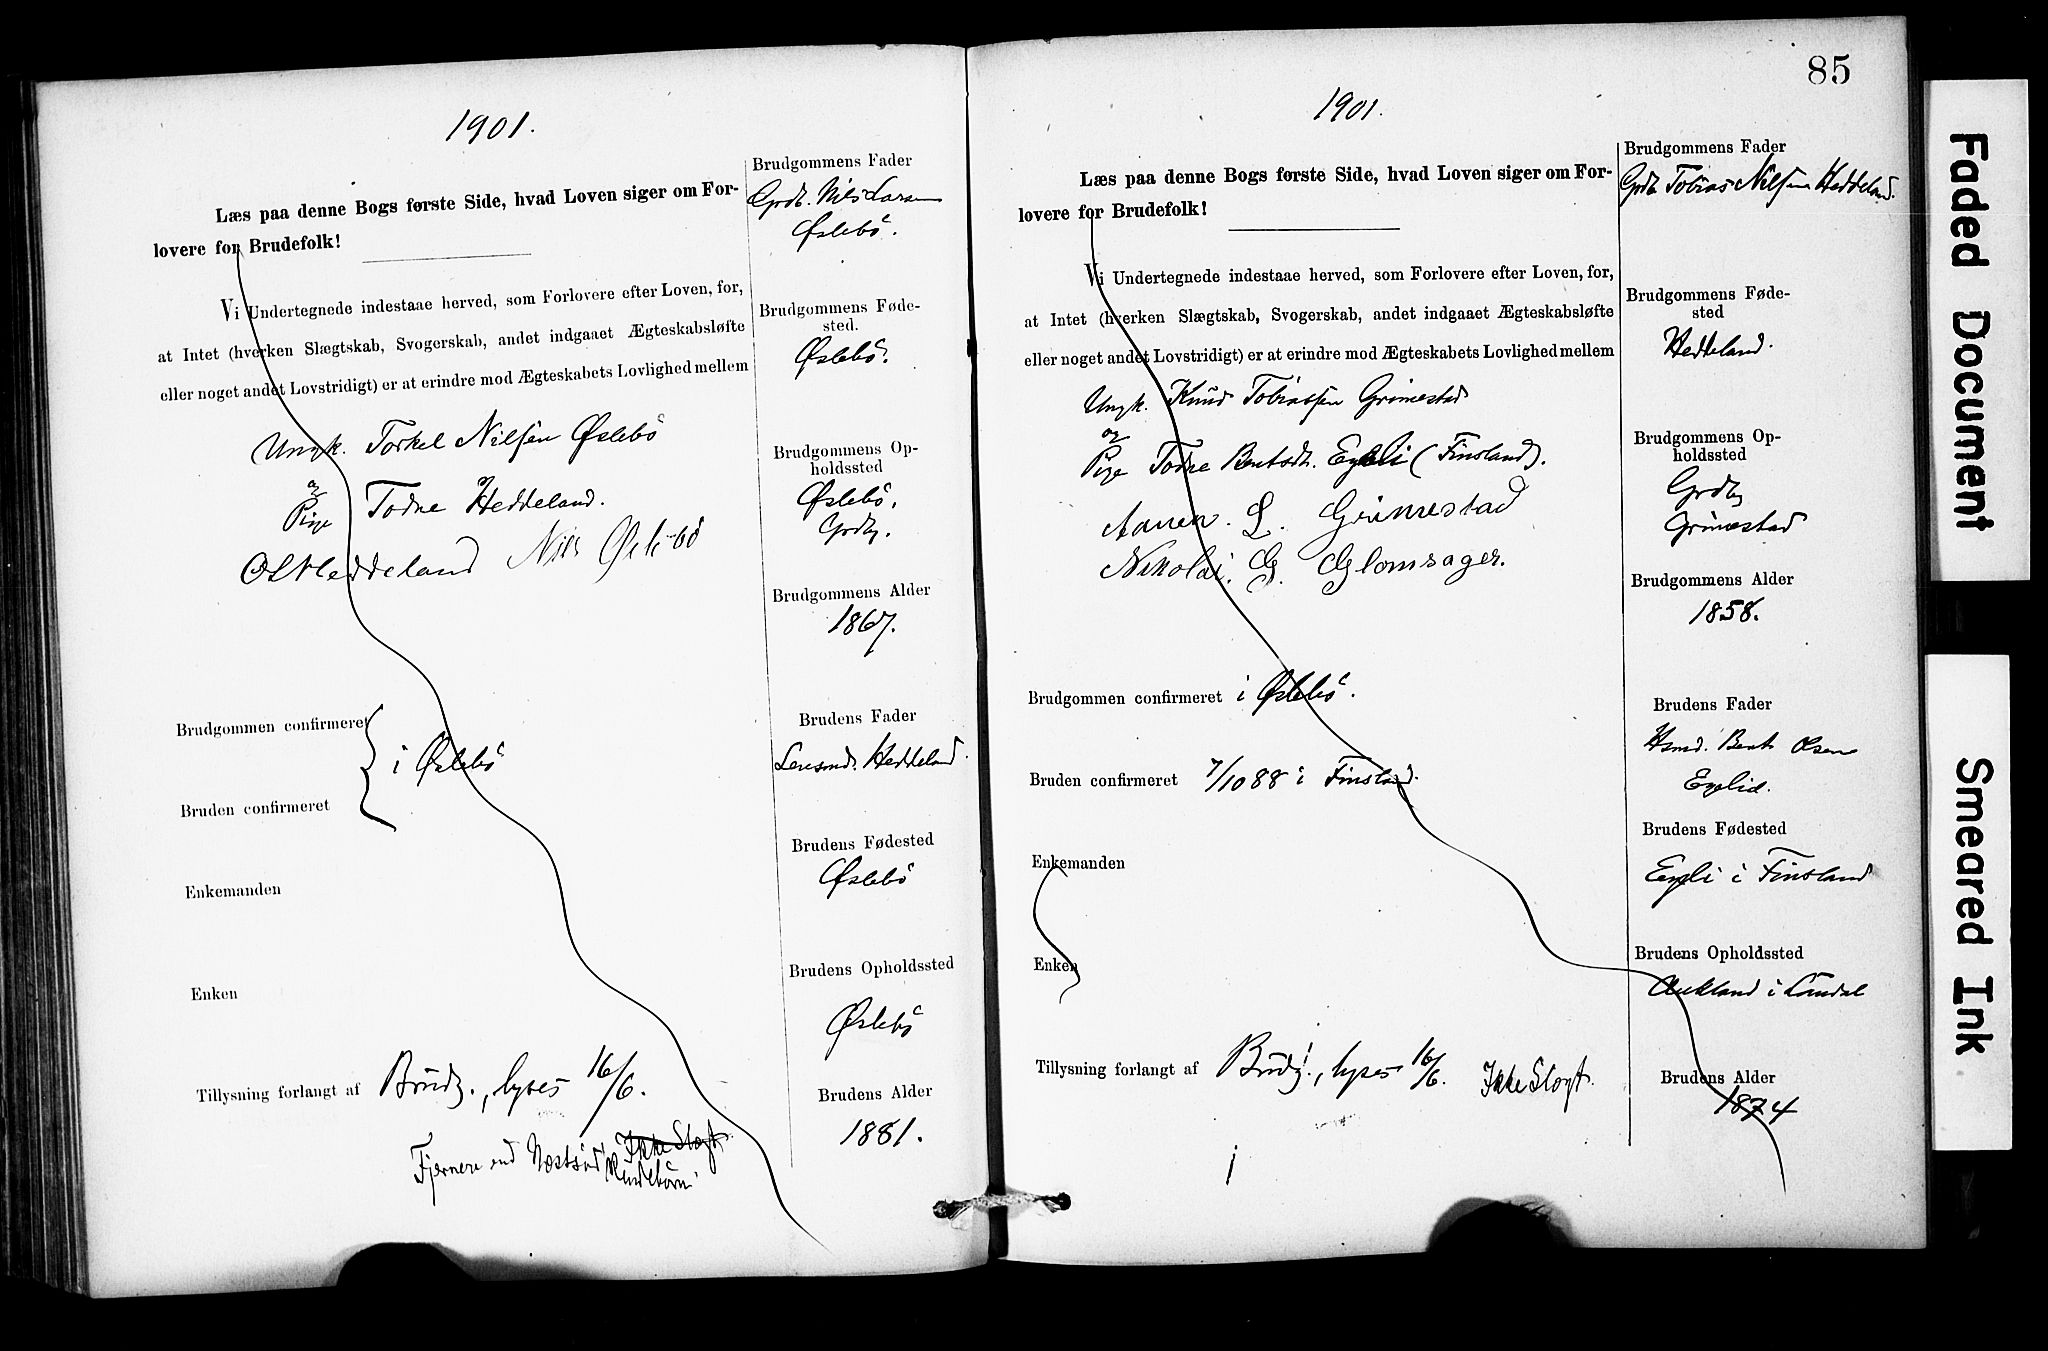 1901.
Læs paa denne Bogs første Side, hvad Loven siger om For-
lovere for Brudefolk!
Vi Undertegnede indestaae herved, som Forlovere efter Loven, for,
at Intet (hverken Slægtskab, Svogerskab, andet indgaaet Ægteskabsløfte
eller noget andet Lovstridigt) er at erindre mod Ægteskabets Lovlighed mellem
Ungk. Torkel Nilsen Øslebö
og
Pige Todne Heddeland.
Heddeland Nils Øslebö
Brudgommen confirmeret
i Øslebö
Bruden confirmeret
Enkemanden
Enken
Tillysning forlangt af Brudg., lyses 16/6.
Fjernere end Næstsödsk Ikke Slægt.
Brudgommens Fader
Grdb. Nils Larsen
Øslebö.
Brudgommens Føde-
sted.
Øslebö.
Brudgommens Op-
holdssted
Øslebö.
Grdbr.
Brudgommens Alder
1867.
Brudens Fader
Lensmd. Heddeland.
Brudens Fødested
Øslebö
Brudens Opholdssted
Øslebö
Brudens Alder
1881.
85
1901.
Læs paa denne Bogs første Side, hvad Loven siger om For-
lovere for Brudefolk!
Vi Undertegnede indestaae herved, som Forlovere efter Loven, for,
at Intet (hverken Slægtskab, Svogerskab, andet indgaaet Ægteskabsløfte
eller noget andet Lovstridigt) er at erindre mod Ægteskabets Lovlighed mellem
Ungk. Knud Tobiassen Grimestad
og
Pige Todne Bentsdt. Egeli (Finsland).
Aanen. L. Grimestad
Nikolai. G. Glomsager.
Brudgommen confirmeret i Øslebö.
Bruden confirmeret 7/10 88 i Finsland.
Enkemanden
Enken
Tillysning forlangt af Brudg., lyses 16/6. Ikke Slægt.
Brudgommens Fader
Grdb. Tobias Nilsen Heddeland.
Brudgommens Føde-
sted
Heddeland.
Brudgommens Op-
holdssted
Grdbr
Grimestad
Brudgommens Alder
1858.
Brudens Fader
Hsmd. Bent Olsen
Egelid.
Brudens Fødested
Egeli i Finsland
Brudens Opholdssted
Aukland i Laudal
Brudens Alder
1874
Faded Document
Smeared Ink